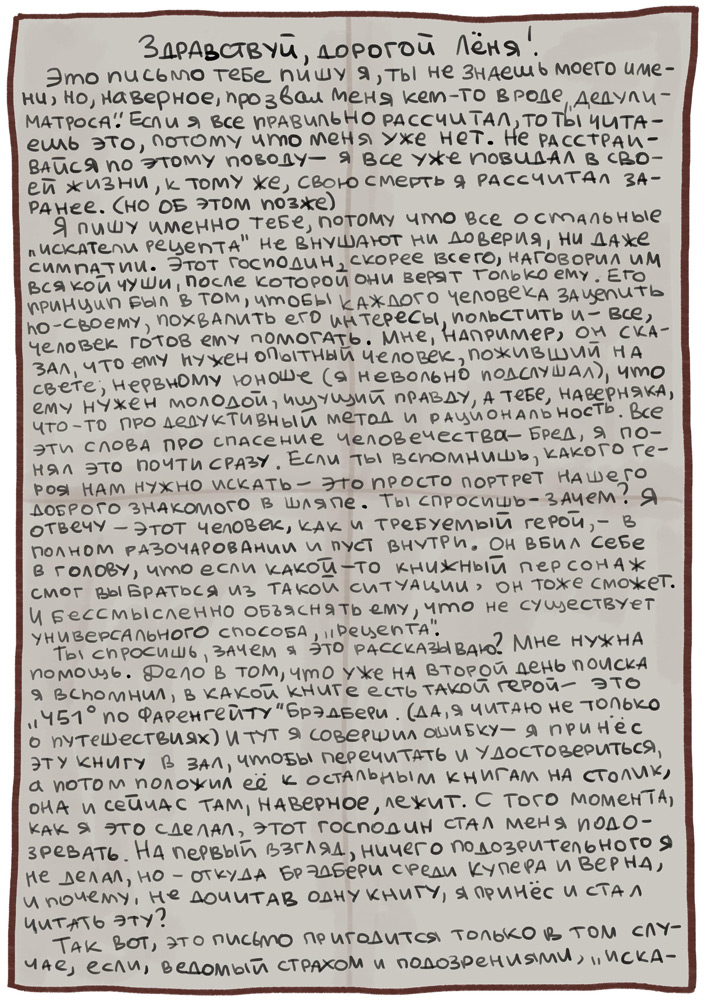 Здравствуй, дорогой Лёня!
Это письмо тебе пишу я, ты не знаешь моего име-
ни, но, наверное, прозвал меня кем-то вроде „дедули-
матроса". Если я все правильно рассчитал, то ты чита-
ешь это, потому что меня уже нет. Не расстраи-
вайся по этому поводу — я все уже повидал в сво-
ей жизни, к тому же, свою смерть я рассчитал за-
ранее. (но об этом позже)
Я пишу именно тебе, потому что все остальные
„искатели рецепта" не внушают ни доверия, ни даже
симпатии. Этот господин, скорее всего, наговорил им
всякой чуши, после которой они верят только ему. Его
принцип был в том, чтобы каждого человека зацепить
по-своему, похвалить его интересы, польстить и – все,
человек готов ему помогать. Мне, например, он ска-
зал, что ему нужен опытный человек, поживший на
свете, нервному юноше (я невольно подслушал), что
ему нужен молодой, ищущий правду, а тебе, наверняка,
что-то про дедуктивный метод и рациональность. Все
эти слова про спасение человечества – бред, я по-
нял это почти сразу. Если ты вспомнишь, какого ге-
роя нам нужно искать – это просто портрет нашего
доброго знакомого в шляпе. Ты спросишь – зачем? Я
отвечу – этот человек, как и требуемый герой, – в
полном разочаровании и пуст внутри. Он вбил себе
в голову, что если какой-то книжный персонаж
смог выбраться из такой ситуации, он тоже сможет.
И бессмысленно объяснять ему, что не существует
универсального способа, „рецепта".
Ты спросишь, зачем я это рассказываю? Мне нужна
помощь. Дело в том, что уже на второй день поиска
я вспомнил, в какой книге есть такой герой – это
„451° по Фаренгейту" Брэдбери. (да, я читаю не только
о путешествиях) И тут я совершил ошибку – я принёс
эту книгу в зал, чтобы перечитать и удостовериться,
а потом положил её к остальным книгам на столик,
она и сейчас там, наверное, лежит. С того момента,
как я это сделал, этот господин стал меня подо-
зревать. На первый взгляд, ничего подозрительного я
не делал, но – откуда Брэдбери среди Купера и Верна,
и почему, не дочитав одну книгу, я принёс и стал
читать эту?
Так вот, это письмо пригодится только в том слу-
чае, если, ведомый страхом и подозрениями, „иска-